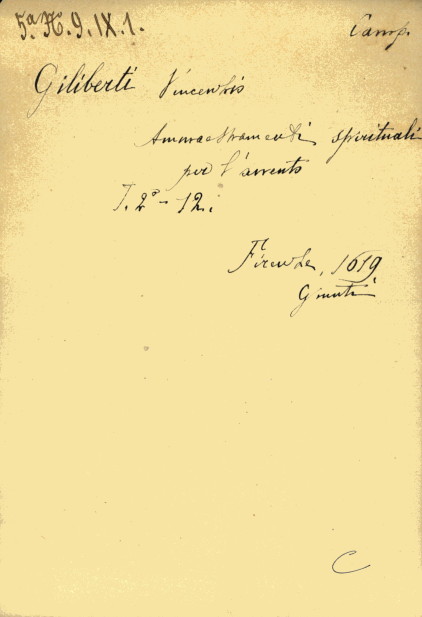 5.ª H. 9. IX. 1.
Camp.
Giliberti Vincenzo
Ammaestramenti spirituali
per l'avvento
T. 2º - 12.
Firenze, 1619
Giunti
C